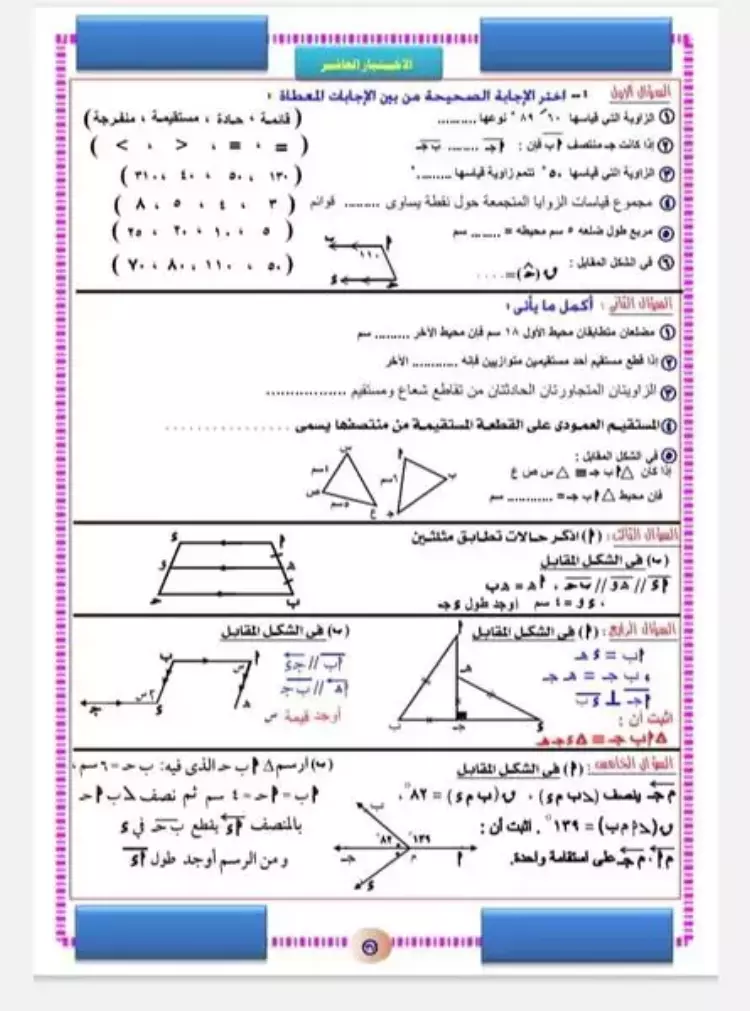 الاختبار العاشر
السؤال الأول ١- اختر الإجابة الصحيحة من بين الإجابات المعطاة :
١ الزاوية التي قياسها ٦٠ ′ ٨٩ ° نوعها .......... ( قائمة ، حادة ، مستقيمة ، منفرجة )
٢ إذا كانت جـ منتصف أب فإن : أجـ ........ ب جـ ( = ، ≡ ، > ، < )
٣ الزاوية التي قياسها ٥٠ ° تتمم زاوية قياسها .........° ( ١٣٠ ، ٥٠ ، ٤٠ ، ٣١٠ )
٤ مجموع قياسات الزوايا المتجمعة حول نقطة يساوى ......... قوائم ( ٣ ، ٤ ، ٥ ، ٨ )
٥ مربع طول ضلعه ٥ سم محيطه = ........ سم ( ٥ ، ١٠ ، ٢٠ ، ٢٥ )
٦ فى الشكل المقابل : ن (ء) = .... ( ٥٠ ، ١١٠ ، ٨٠ ، ٧٠ )
أ ب ١١٠ ء
السؤال الثاني : أكمل ما يأتى :
١ مضلعان متطابقان محيط الأول ١٨ سم فإن محيط الآخر ......... سم
٢ إذا قطع مستقيم أحد مستقيمين متوازيين فإنه ............ الآخر
٣ الزاويتان المتجاورتان الحادثتان من تقاطع شعاع ومستقيم ................
٤ المستقيم العمودى على القطعة المستقيمة من منتصفها يسمى ................
٥ فى الشكل المقابل :
إذا كان △ أ ب جـ ≡ △ س ص ع
فإن محيط △ أ ب جـ = ............ سم
س ٤سم ص ٥سم ع أ ٦سم ب جـ
السؤال الثالث : (أ) اذكر حالات تطابق مثلثين
(ب) فى الشكل المقابل
أء // هـ و // ب جـ ، أهـ = هـ ب
، ء و = ٤ سم أوجد طول ء جـ
ء أ و هـ جـ ب
السؤال الرابع : (أ) فى الشكل المقابل
أب = ء هـ
، ب جـ = هـ جـ
أجـ ⊥ ء ب
اثبت أن :
△ أ ب جـ ≡ △ ء جـ هـ
أ هـ ب جـ ء
(ب) فى الشكل المقابل
أب // جـ ء
أهـ // ب ء
أوجد قيمة س
ب أ س ٢س هـ ء جـ
السؤال الخامس : (أ) فى الشكل المقابل
م جـ ينصف (∠ ب م ء) ، ن (ب م ء) = ٨٢ ° ،
ن (∠ أ م ب) = ١٣٩ ° . اثبت أن :
م أ ، م جـ على استقامة واحدة.
ب ٨٢° ١٣٩° جـ م أ ء
(ب) ارسم △ أ ب حـ الذى فيه: ب حـ = ٦ سم ،
أ ب = أ حـ = ٤ سم ثم نصف ∠ ب أ حـ
بالمنصف أء يقطع ب حـ في ء
ومن الرسم أوجد طول أء